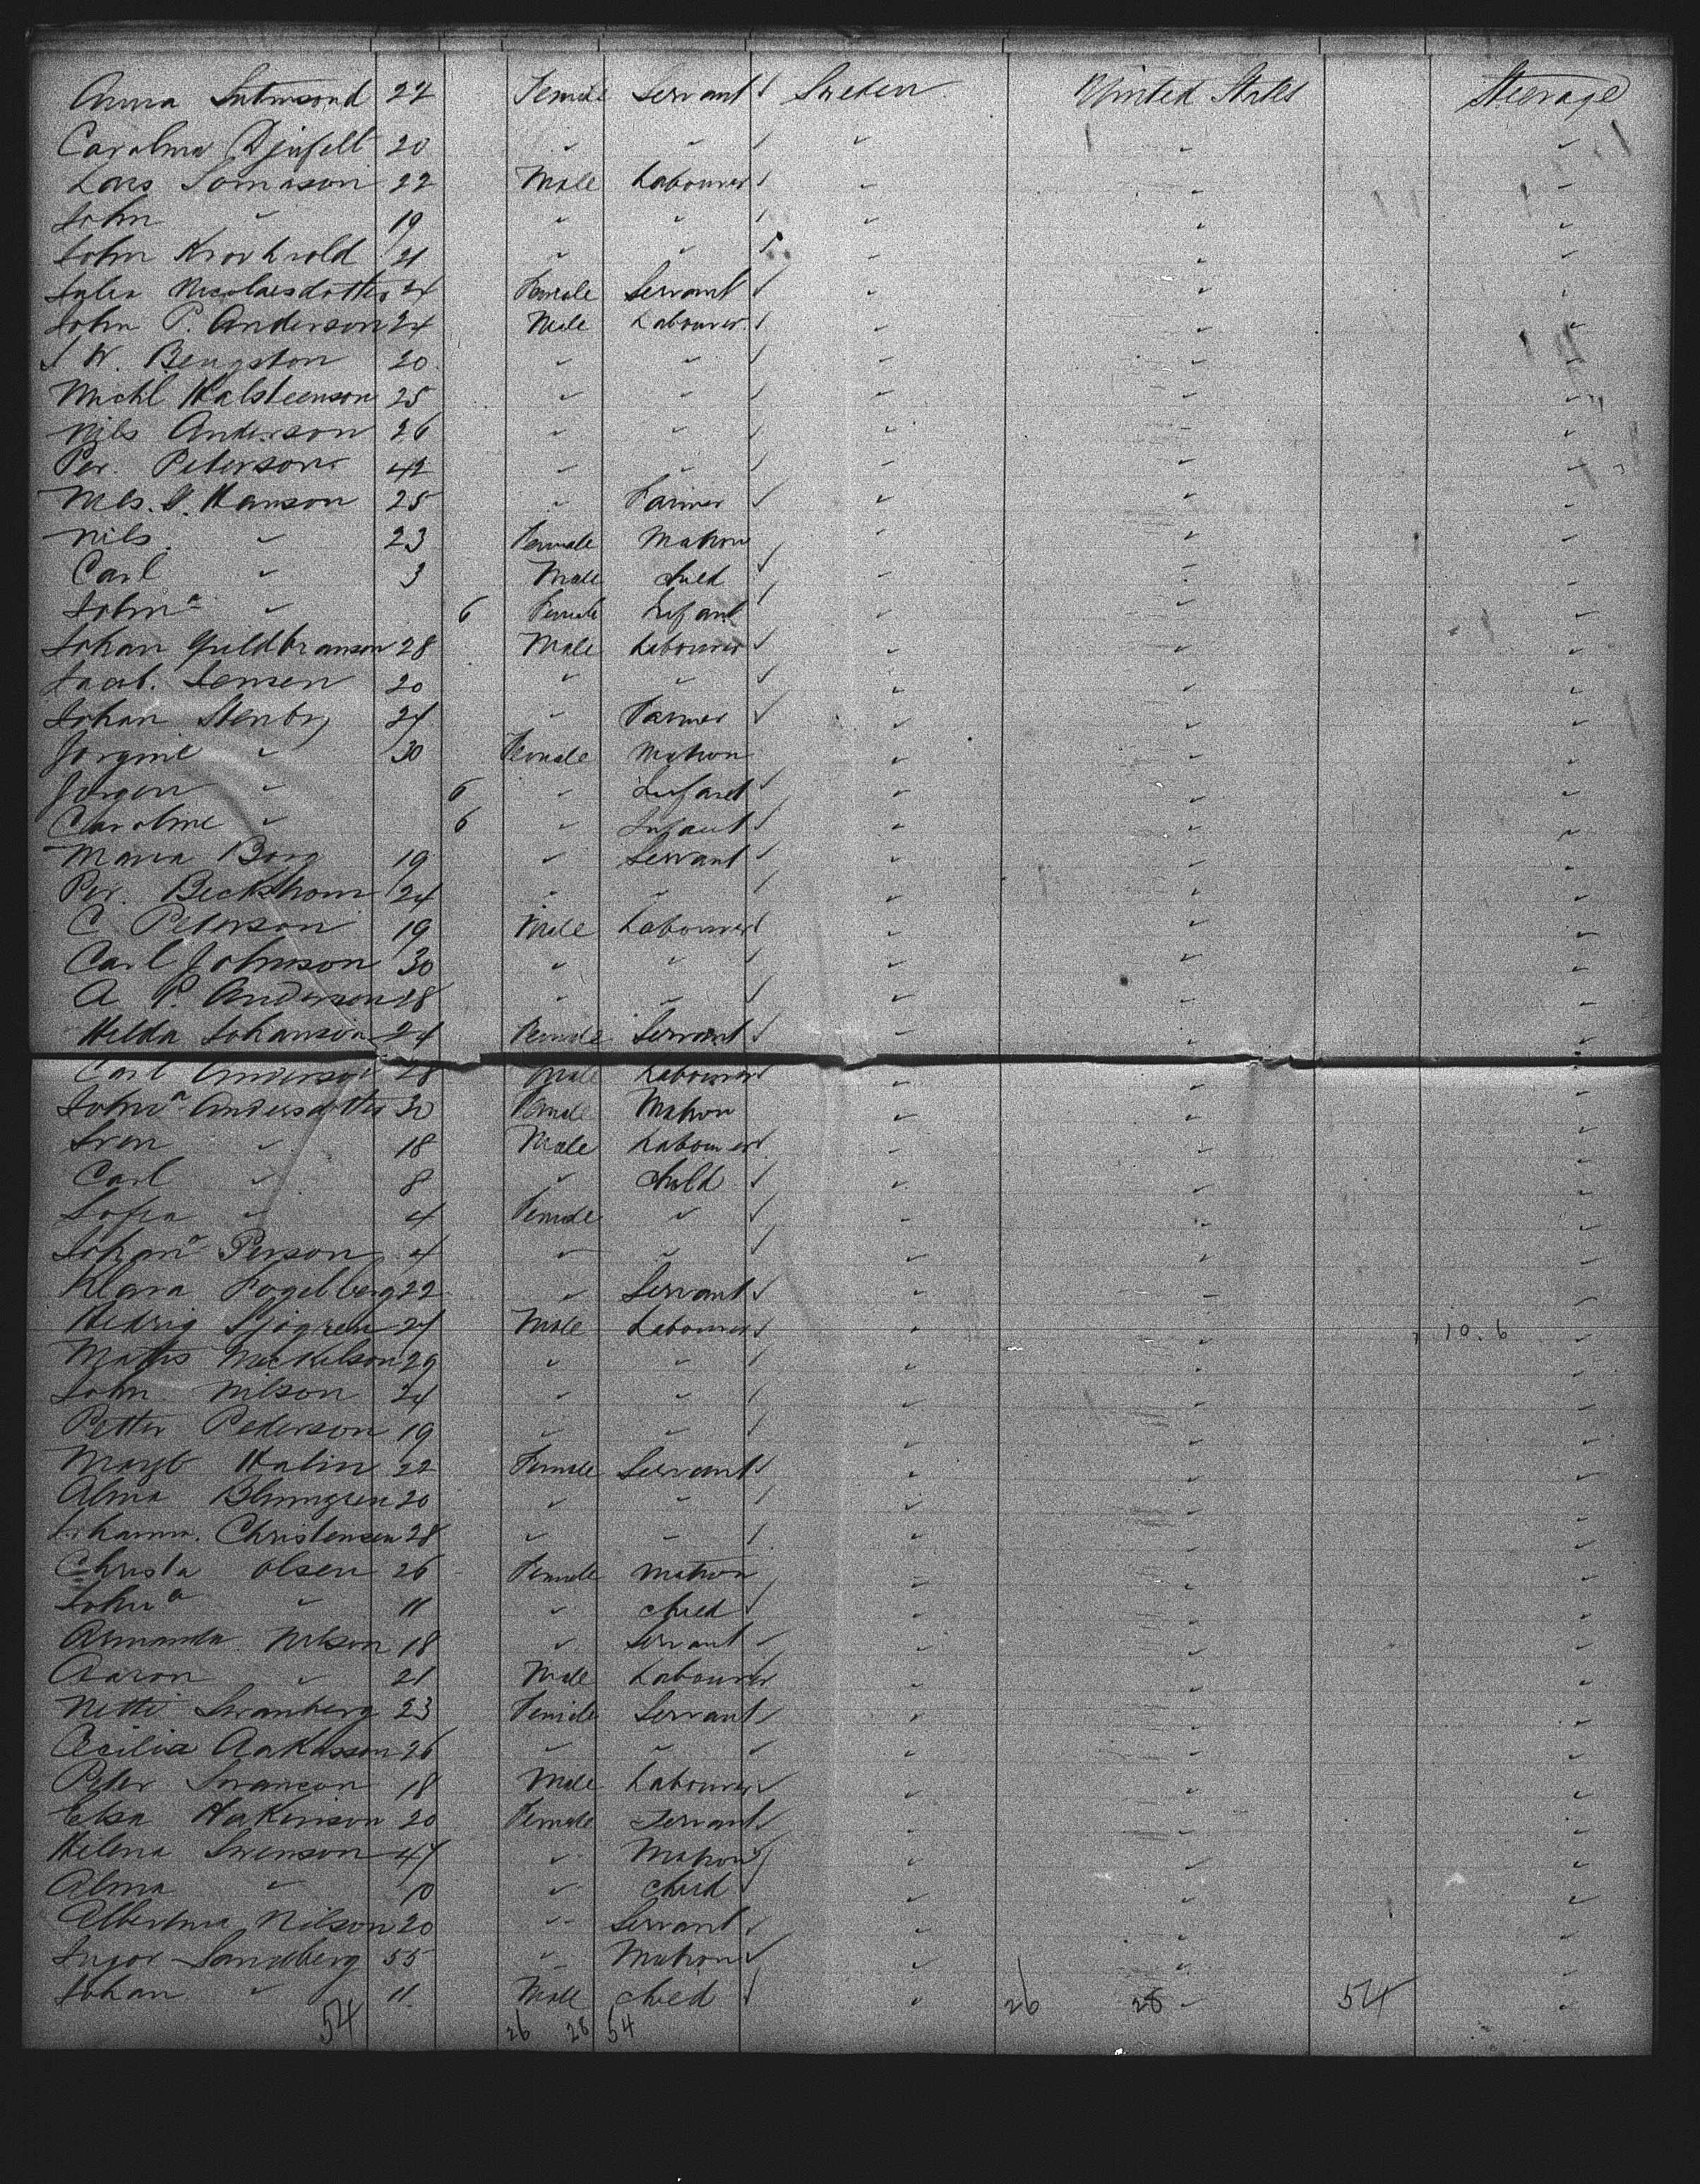 Anna 22 Female Servant Sweden United States Steerage
Carolina 20 " " " " "
Lars 22 Male Labourer " " "
John " 19 " " " " "
John 21 " " " " "
Nicolaisdotter 24 Female Servant " " "
John P. Anderson 24 Male Labourer " " "
W. Bengston 20 " " " " "
Michl Halsteenson 25 " " " " "
Nils Anderson 26 " " " " "
Per. Peterson 42 " " " " "
Nils. Hanson 25 " Farmer " " "
Nils. " 23 Female Matron " " "
Carl " 3 Male Child " " "
Johna " 6 Female Infant " " "
Johan Guldbranson 28 Male Labourer " " "
Jacob. Jensen 20 " " " " "
Johan Stenby 24 " Farmer " " "
Jorgine " 30 Female Matron " " "
Jorgen " 6 " Infant " " "
Caroline " 6 " Infant " " "
Maria Borg 19 " Servant " " "
Per. Beckstrom 24 " " " " "
C Peterson 19 Male Labourer " " "
Carl Johnson 30 " " " " "
A P. Anderson 28 " " " " "
Hilda Johanson 24 Female Servant " " "
Carl Anderson 28 Male Labourer " " "
Johna Andersdotter 30 Female Matron " " "
Sven " 18 Male Labourer " " "
Carl " 8 " Child " " "
Sofia " 4 Female " " " "
Johana Person 4 " " " " "
Klara Fogelberg 22 " Servant " " "
Hedvig Sjogren 24 Male Labourer " " 10.6 "
Matts Mickelson 29 " " " " "
John Nilson 24 " " " " "
Petter Pederson 19 " " " " "
Halin 22 Female Servant " " "
Alma Blumgren 20 " " " " "
Christensen 28 " " " " "
Christa Olsen 26 Female Matron " " "
Johna " 11 " Child " " "
Armanda Nilson 18 " Servant " " "
Aaron " 21 Male Labourer " " "
Netti Swanberg 23 Female Servant " " "
Cecilia Aakesson 26 " " " " "
Peter Swanson 18 Male Labourer " " "
Elsa Hakinson 20 Female Servant " " "
Helena Swenson 47 " Matron " " "
Alma " 10 " Child " " "
Albertina Nilson 20 " Servant " " "
Sandberg 55 " Matron " " "
Johan " 11 Male Child " 26 28 " 54 "
54 26 28 54